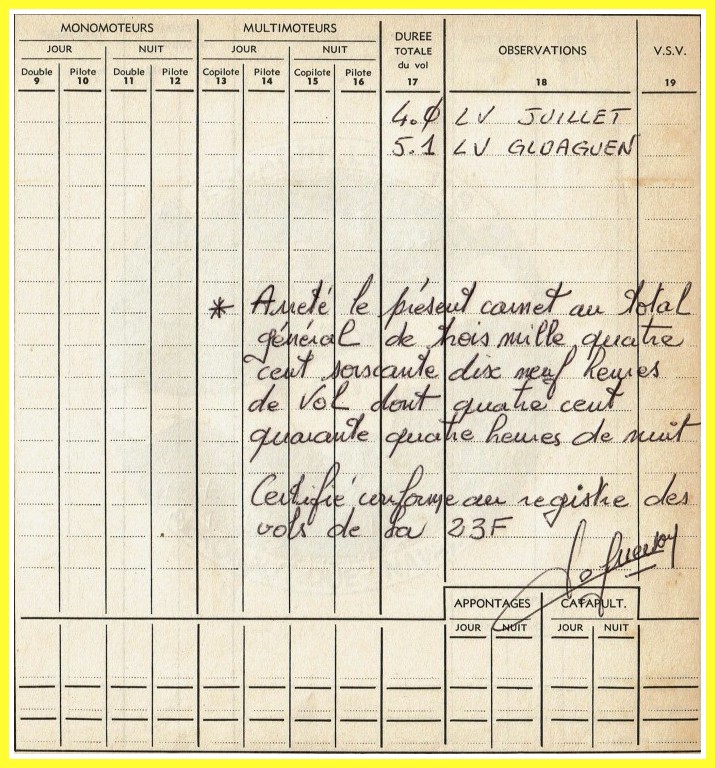 MONOMOTEURS MULTIMOTEURS DUREE TOTALE du vol OBSERVATIONS V.S.V.
JOUR NUIT JOUR NUIT
Double 9 Pilote 10 Double 11 Pilote 12 Copilote 13 Pilote 14 Copilote 15 Pilote 16 17 18 19
4.0 LV JUILLET
5.1 LV GLOAGUEN
* Arreté le présent carnet au total
général de trois mille quatre
cent soixante dix neuf heures
de vol dont quatre cent
quarante quatre heures de nuit
Certifié conforme au registre des
vols de la 23F
APPONTAGES CATAPULT.
JOUR NUIT JOUR NUIT